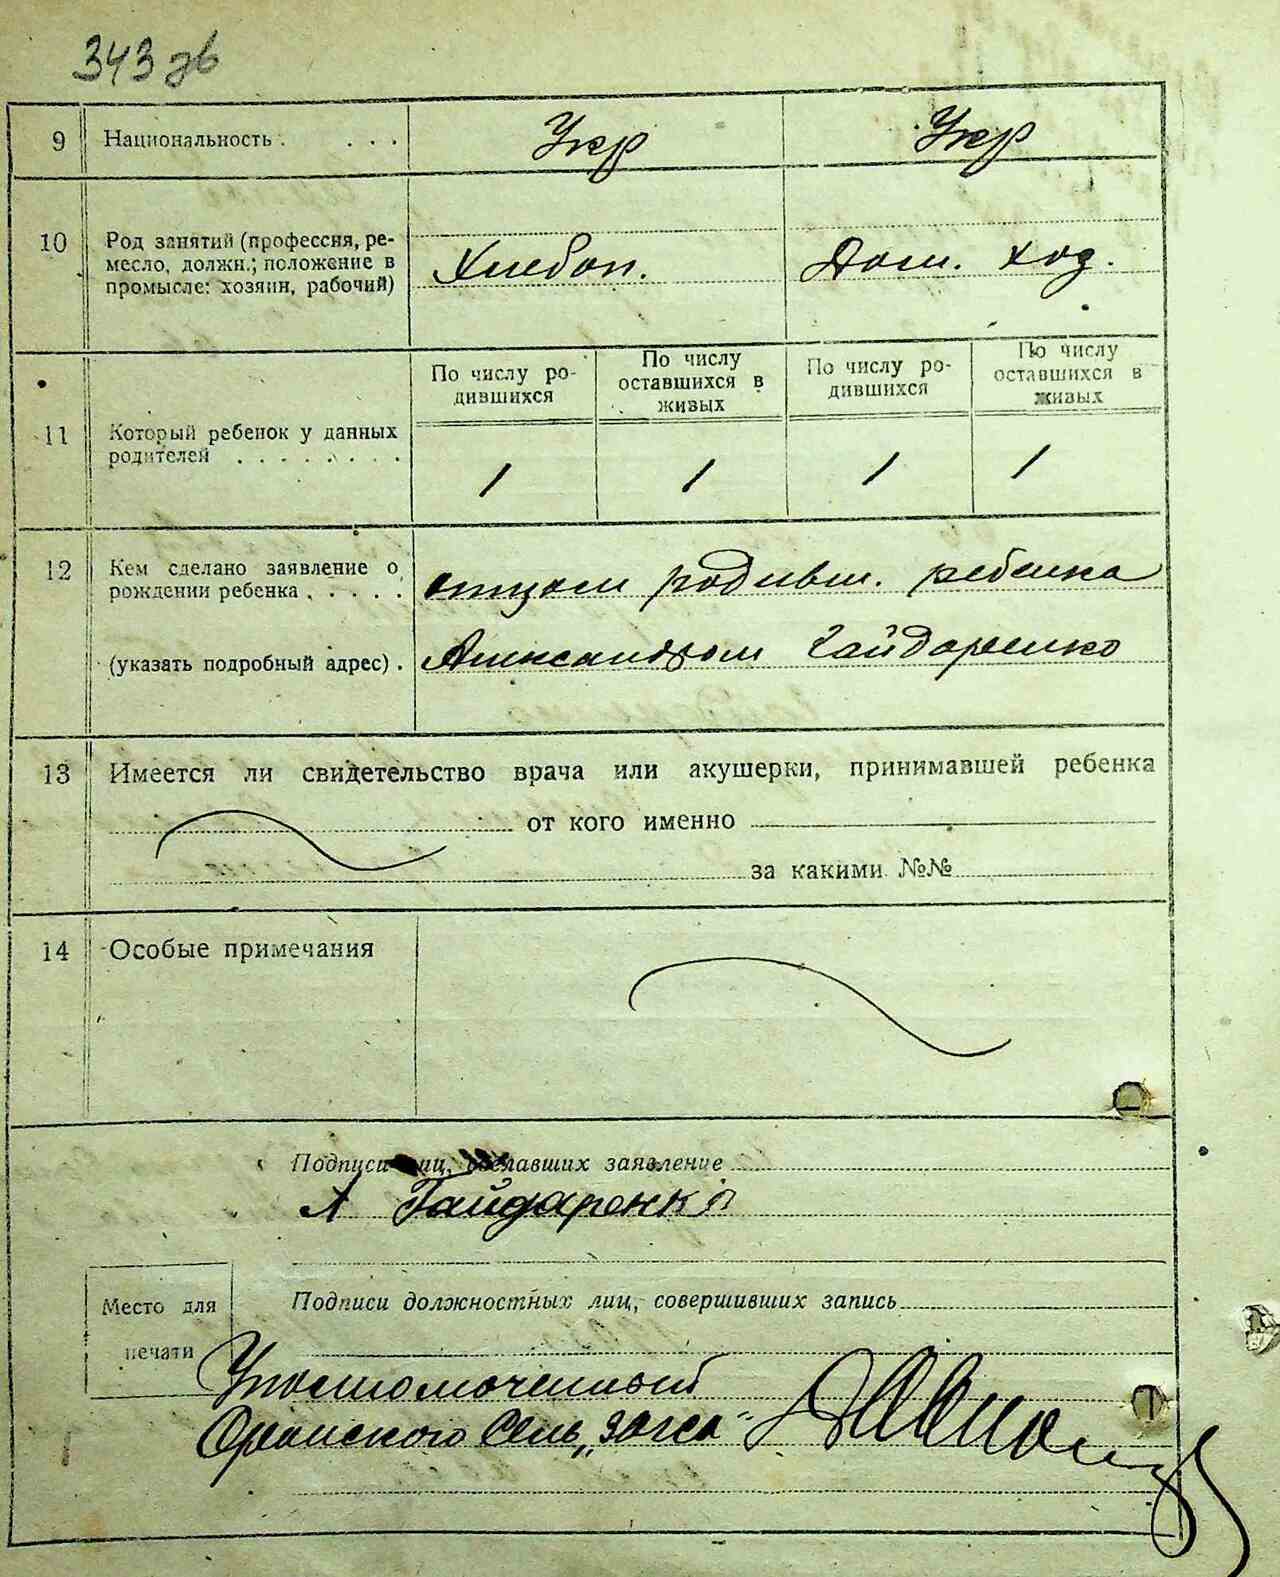 343 зв
9 Национальность . . . . Укр Укр
10 Род занятий (профессия, ре-
месло, должн.; положение в
промысле: хозяин, рабочий) Хлебоп. Дом. хоз.
11 Который ребенок у данных
родителей . . . . . . . .
По числу ро-
дившихся
По числу
оставшихся в
живых
По числу ро-
дившихся
По числу
оставшихся в
живых
1 1 1 1
12 Кем сделано заявление о
рождении ребенка . . . . . отцом родивш. ребенка
(указать подробный адрес) . Александром Гайдаренко
13 Имеется ли свидетельство врача или акушерки, принимавшей ребенка
от кого именно
за какими №№
14 Особые примечания
Подписи лиц, сделавших заявление
А Гайдаренко
Место для
печати
Подписи должностных лиц, совершивших запись
Уполномоченный
Сель „Загса"